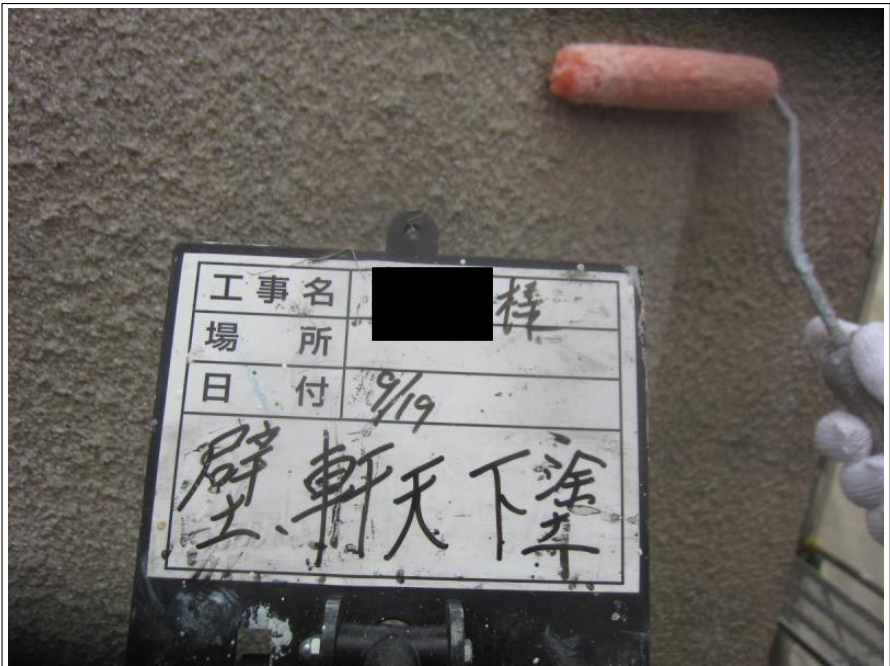 工事名 様
場所
日付 9/19
壁、軒天下塗